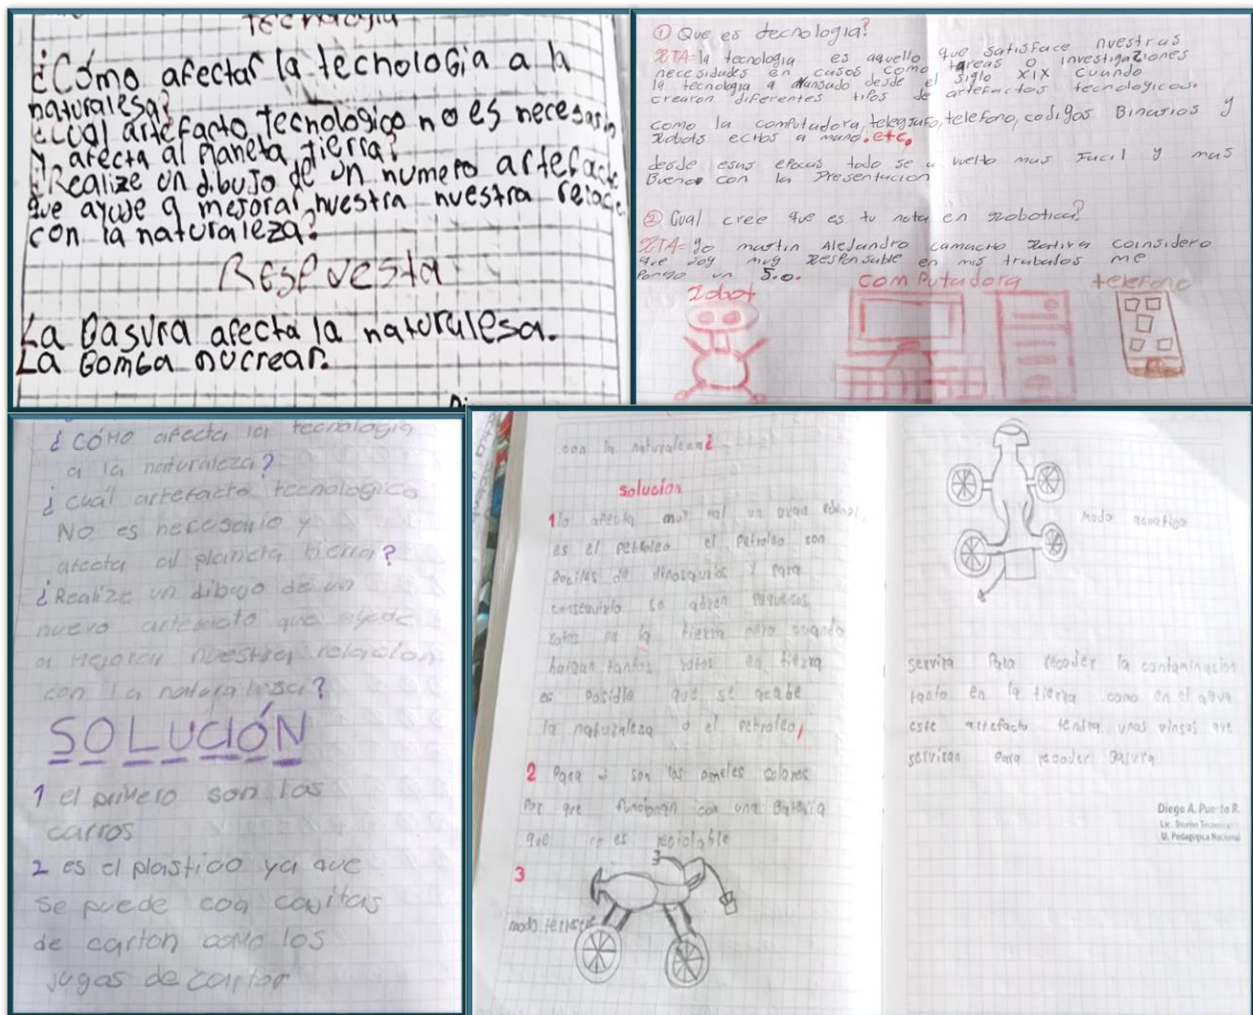 Tecnologia
¿Cómo afectar la tecnologia a la
naturalesa?
¿Cual artefacto tecnologico no es necesario
y afecta al planeta tierra?
¿Realize un dibujo de un numero artefacto
que ayude a mejorar nuestra nuestra relacio
con la naturaleza?
Respuesta
La Basura afecta la naturalesa.
La Bomba nucrear.
① Que es tecnologia?
RTA= la tecnologia es aquello que satisface nuestras
necesidades en casos como tareas o investigaziones
la tecnologia a avansado desde el siglo XIX cuando
crearon diferentes tipos de artefactos tecnologicos.
como la computadora, telegrafo, telefono, codigos Binarios y
Robots echos a mano.etc.
desde esas epocas todo se a vuelto mas facil y mas
Bueno con la Presentacion
② Cual cree que es tu nota en robotica?
RTA= yo martin Alejandro camacho coinsidero
que soy muy responsable en mis trabalos me
Pongo un 5.0.
Robot
computadora
telefono
¿CÓMO afecta la tecnologia
a la naturaleza?
¿cual artefacto tecnologico
NO es necesario y
afecta al planeta tierra?
¿Realize un dibujo de un
nuevo artefacto que ayude
a mejorar nuestra relacion
con la naturaleza?
SOLUCIÓN
1 el primero son los
carros
2 es el plastico ya que
se puede con cajitas
de carton como los
jugos de carton
con la
solucion
1 lo afecta muy mal un gran
es el petroleo el petroleo son
fosiles de dinosaurios y para
conseguirlo se abren pequeños
rotos en la tierra pero cuando
hangan tantos rotos en tierra
es posidle que se acabe
la naturaleza o el petroleo,
2 Para mi son los paneles solares
Por que funcionan con una Bateria
que no es reciclable
3
modo terrestre
modo acuatico
servira Para recoder la contaminacion
tanto en la tierra como en el agua
este artefacto tendra unas pinsas que
serviran para recoder Basura
Diego A. Puerto R.
Lic. Diseño Tecnológico
U. Pedagógica Nacional